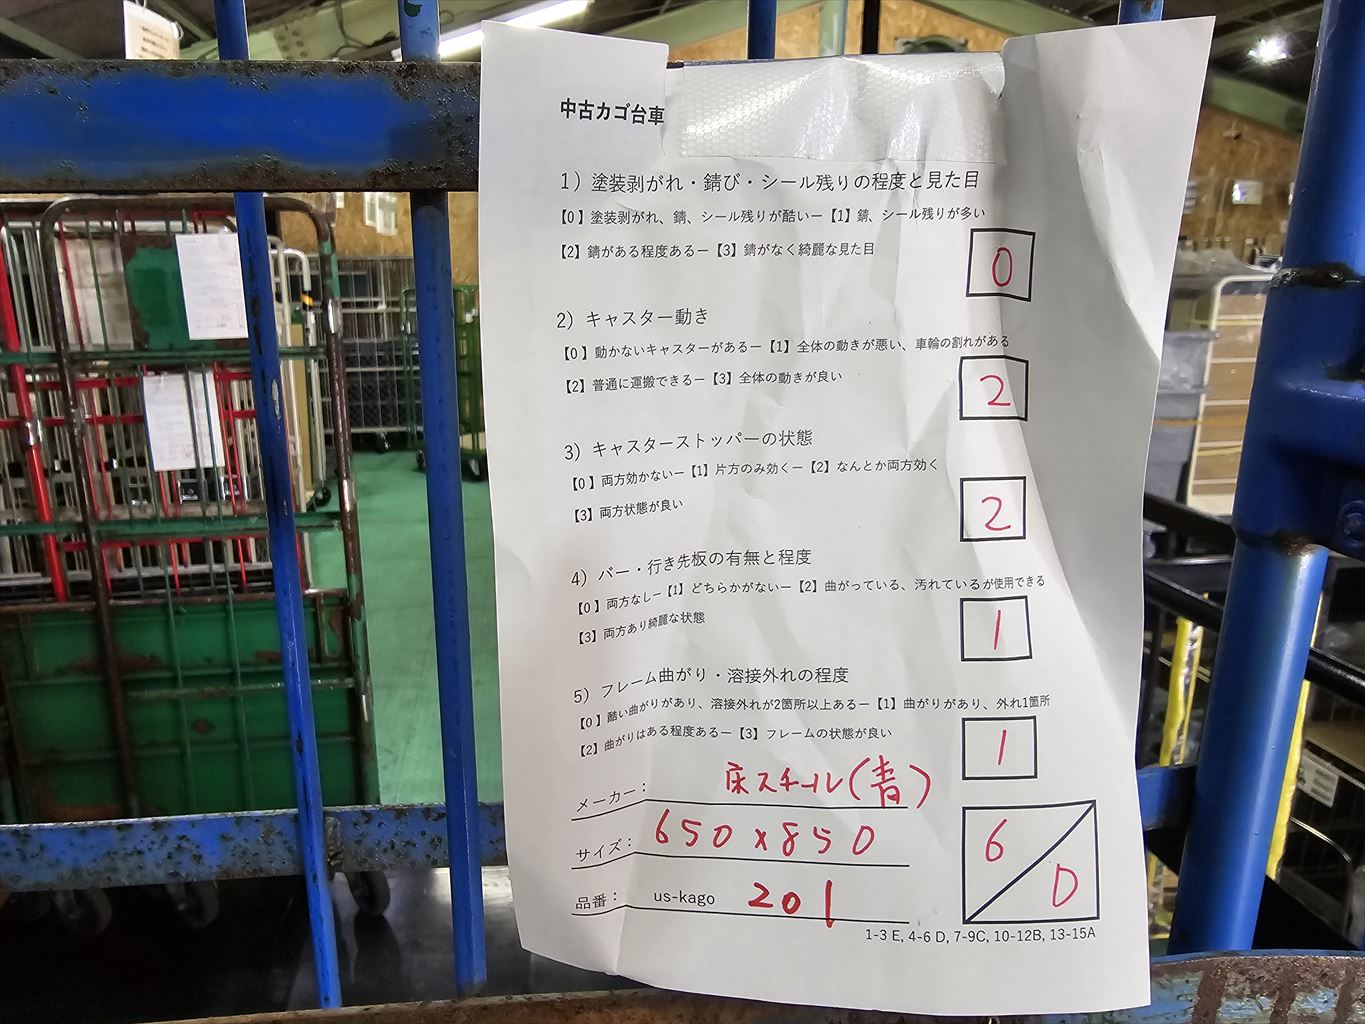 中古カゴ台車
1）塗装剥がれ・錆び・シール残りの程度と見た目
【0】塗装剥がれ、錆、シール残りが酷いー【1】錆、シール残りが多い
【2】錆がある程度あるー【3】錆がなく綺麗な見た目
0
2）キャスター動き
【0】動かないキャスターがあるー【1】全体の動きが悪い、車輪の割れがある
【2】普通に運搬できるー【3】全体の動きが良い
2
3）キャスターストッパーの状態
【0】両方効かないー【1】片方のみ効くー【2】なんとか両方効く
【3】両方状態が良い
2
4）バー・行き先板の有無と程度
【0】両方なしー【1】どちらかがないー【2】曲がっている、汚れているが使用できる
【3】両方あり綺麗な状態
1
5）フレーム曲がり・溶接外れの程度
【0】酷い曲がりがあり、溶接外れが2箇所以上あるー【1】曲がりがあり、外れ1箇所
【2】曲がりはある程度あるー【3】フレームの状態が良い
1
メーカー： 床スチール(青)
サイズ： 650×850
品番： us-kago 201
6 D
1-3 E, 4-6 D, 7-9C, 10-12B, 13-15A